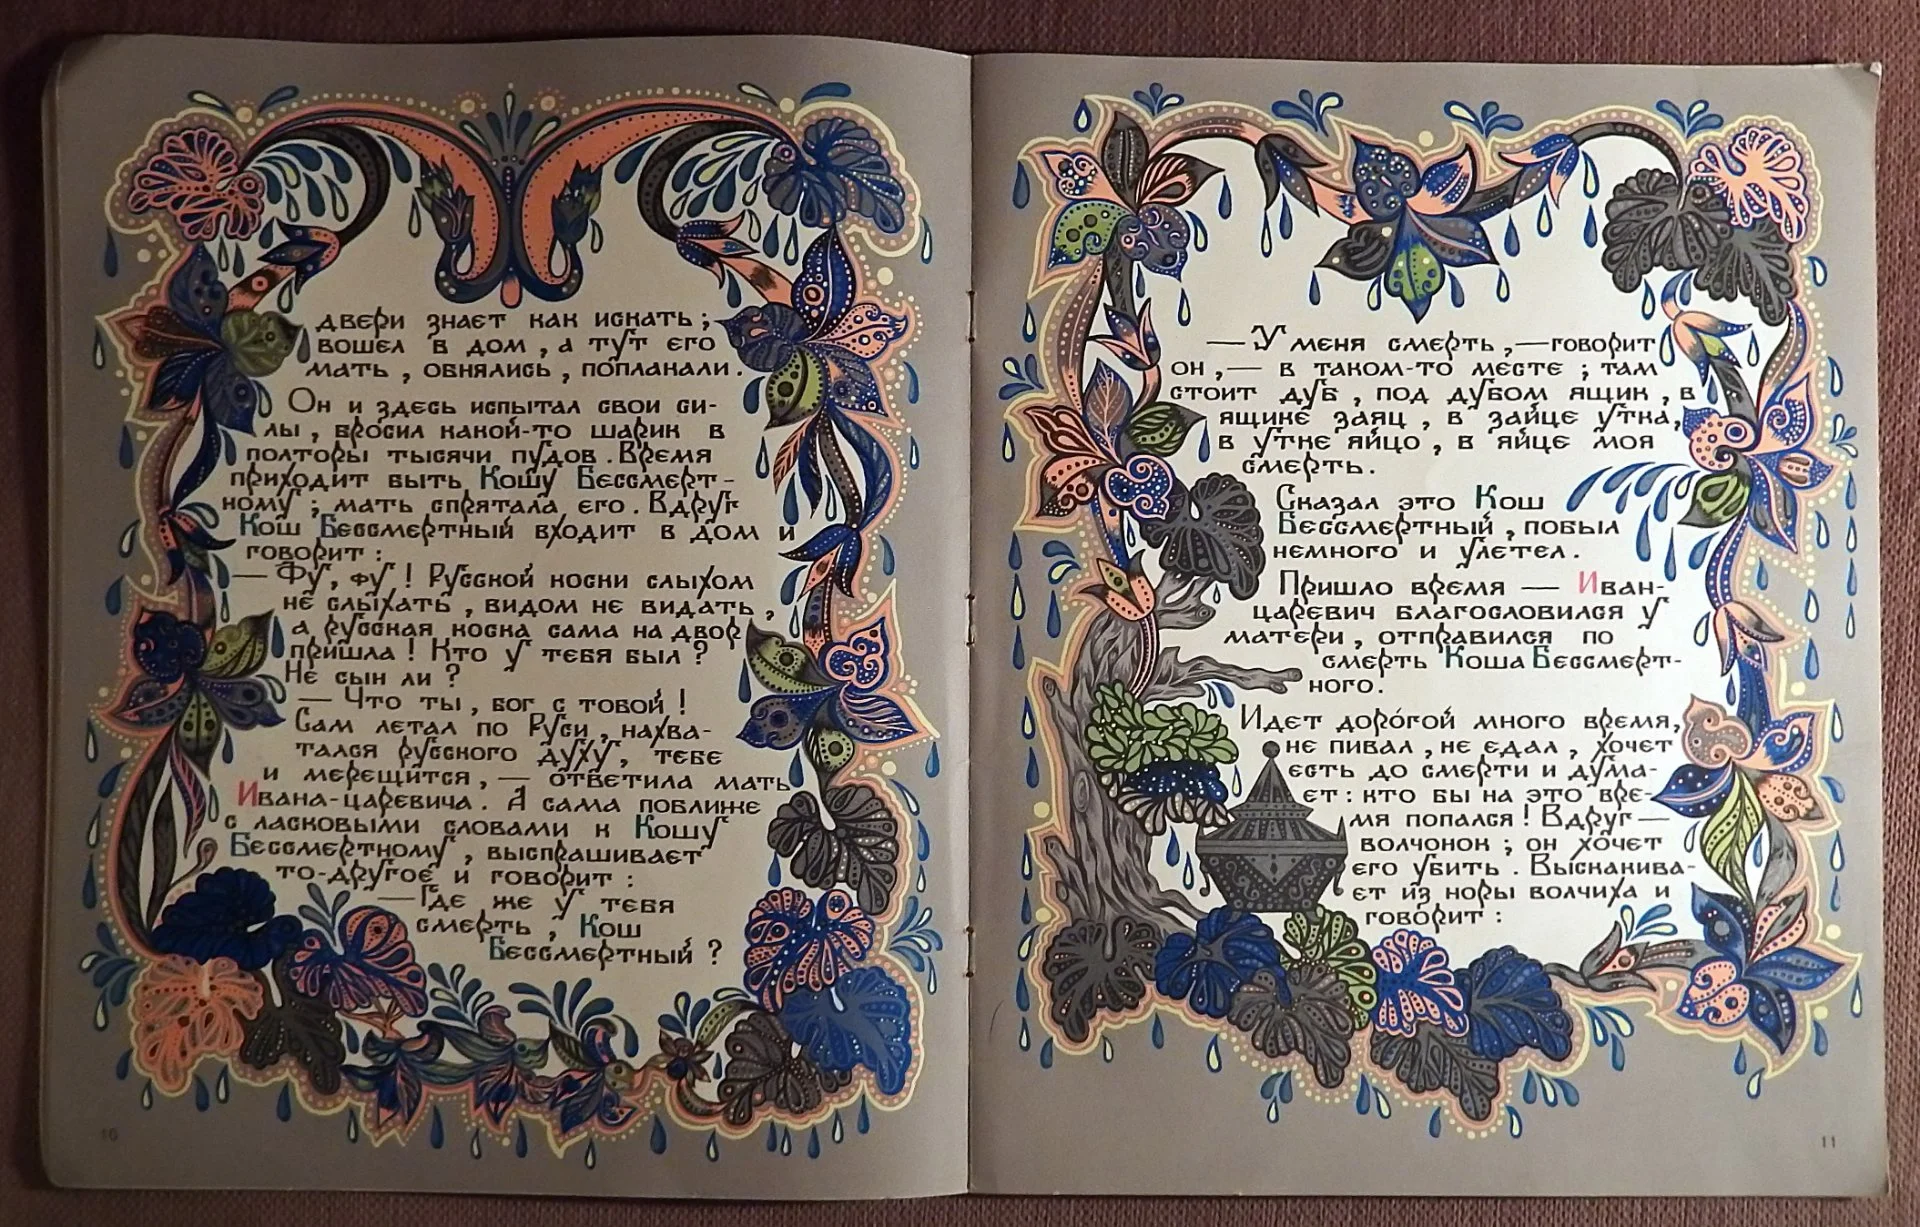 двери знает как искать;
вошел в дом, а тут его
мать, обнялись, поплакали.
Он и здесь испытал свои си-
лы, бросил какой-то шарик в
полторы тысячи пудов. Время
приходит быть Кошу Бессмерт-
ному; мать спрятала его. Вдруг
Кош Бессмертный входит в дом и
говорит:
— Фу, фу! Русской коски слыхом
не слыхать, видом не видать,
а русская коска сама на двор
пришла! Кто у тебя был?
Не сын ли?
— Что ты, бог с тобой!
Сам летал по Руси, нахва-
тался русского духу, тебе
и мерещится, — ответила мать
Ивана-царевича. А сама поближе
с ласковыми словами к Кошу
Бессмертному, выспрашивает
то-другое и говорит:
— Где же у тебя
смерть, Кош
Бессмертный?
10
— У меня смерть, — говорит
он, — в таком-то месте; там
стоит дуб, под дубом ящик, в
ящике заяц, в зайце утка,
в утке яйцо, в яйце моя
смерть.
Сказал это Кош
Бессмертный, побыл
немного и улетел.
Пришло время — Иван-
царевич благословился у
матери, отправился по
смерть Коша Бессмерт-
ного.
Идет доро́гой много время,
не пивал, не едал, хочет
есть до смерти и дума-
ет: кто бы на это вре-
мя попался! Вдруг —
волчонок; он хочет
его убить. Выскакива-
ет из норы волчиха и
говорит:
11